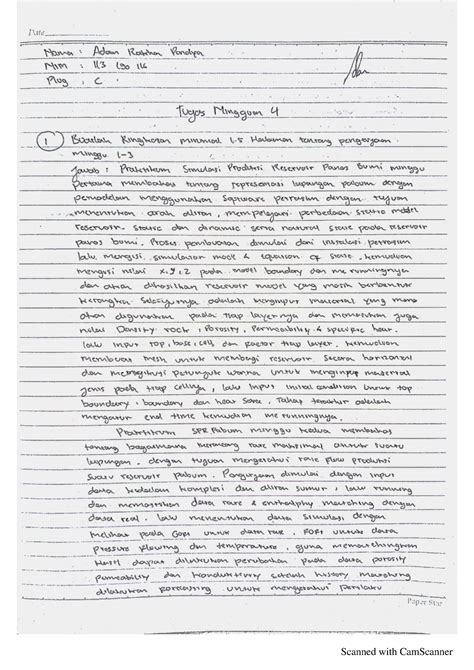 Date
Nama : Adam Raihan Pandya
NIM : 113 190 116
Plug : C
Tugas Mingguan 4
1 Buatlah Ringkasan minimal 1.5 Halaman tentang pengerjaan
minggu 1-3
Jawab : Praktikum Simulasi Produksi Reservoir Panas Bumi minggu
Pertama membahas tentang representasi lapangan pabum dengan
pemodelan menggunakan Software petrasim dengan tujuan
menentukan arah aliran, mempelajari perbedaan static model
reservoir static dan dinamic serta natural state pada reservoir
panas bumi. Proses pembuatan dimulai dari instalasi petrasim
lalu mengisi simulation mode & equation of state, kemudian
mengisi nilai x,y,z pada model boundary dan me runningnya
dan akan dihasilkan reservoir model yang masih berbentuk
kerangka. Selanjutnya adalah menginput material yang mana
akan digunakan pada tiap layernya dan menentukan juga
nilai Density rock, Porosity, Permeability & specific heat.
lalu input top, base, cell, dan factor tiap layer. kemudian
membuat mesh untuk membagi reservoir secara horizontal
dan mengikuti petunjuk warna untuk menginput material
jenis pada tiap cellnya, lalu input initial condition untuk top
boundary, boundary dan heat sora. Tahap terakhir adalah
mengatur end time kemudian me runningnya.
Praktikum SPR Pabum minggu kedua membahas
tentang bagaimana merancang rate maksimal untuk suatu
lapangan, dengan tujuan mengetahui rate flow produksi
suatu reservoir pabum. Pengerjaan dimulai dengan input
data kedalaman komplesi dan aliran sumur, lalu running
dan memastikan data rate & enthalphy matching dengan
data real. lalu menentukan data simulasi, dengan
melihat pada GOFT untuk data rate, FOFT untuk data
pressure flowing dan temperature, guna mematchingkan
Hasil dapat dilakukan perubahan pada data porosity
permeability dan konduktivity setelah history matching
dilakukan forecasting untuk mengetahui perilaku
Paper Star
Scanned with CamScanner